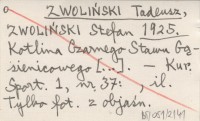 ZWOLIŃSKI Tadeusz,
ZWOLIŃSKI Stefan 1925.
Kotlina Czarnego Stawu Gą-
sienicowego [...]. — Kur.
Sport. 1, nr. 37: , il.
Tylko fot. z objaśn.